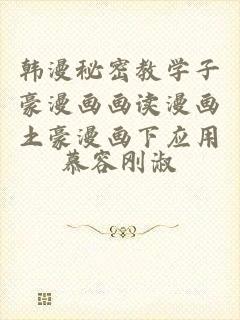 韩漫秘密教学子
豪漫画画读漫画
土豪漫画下应用
慕容刚淑